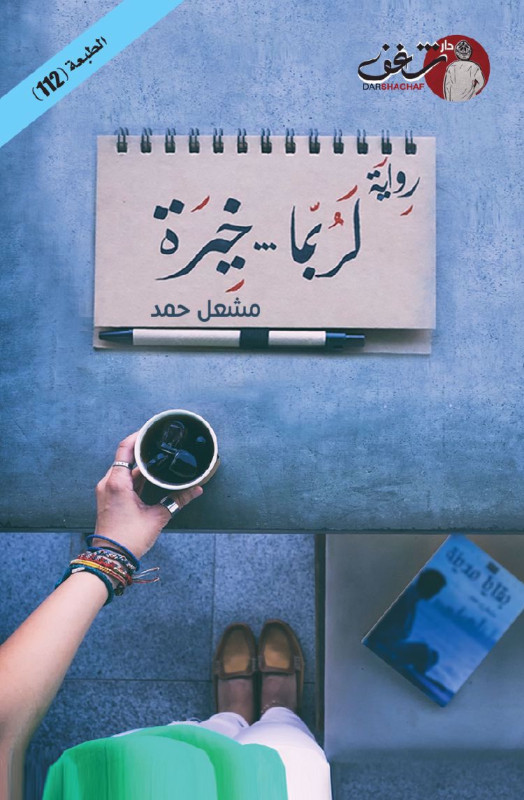 الطبعة (112)
دار شغف
DARSHAGHAF
رواية
لَرُبّما ... خِيَرة
مشعل حمد
بقايا مدينة